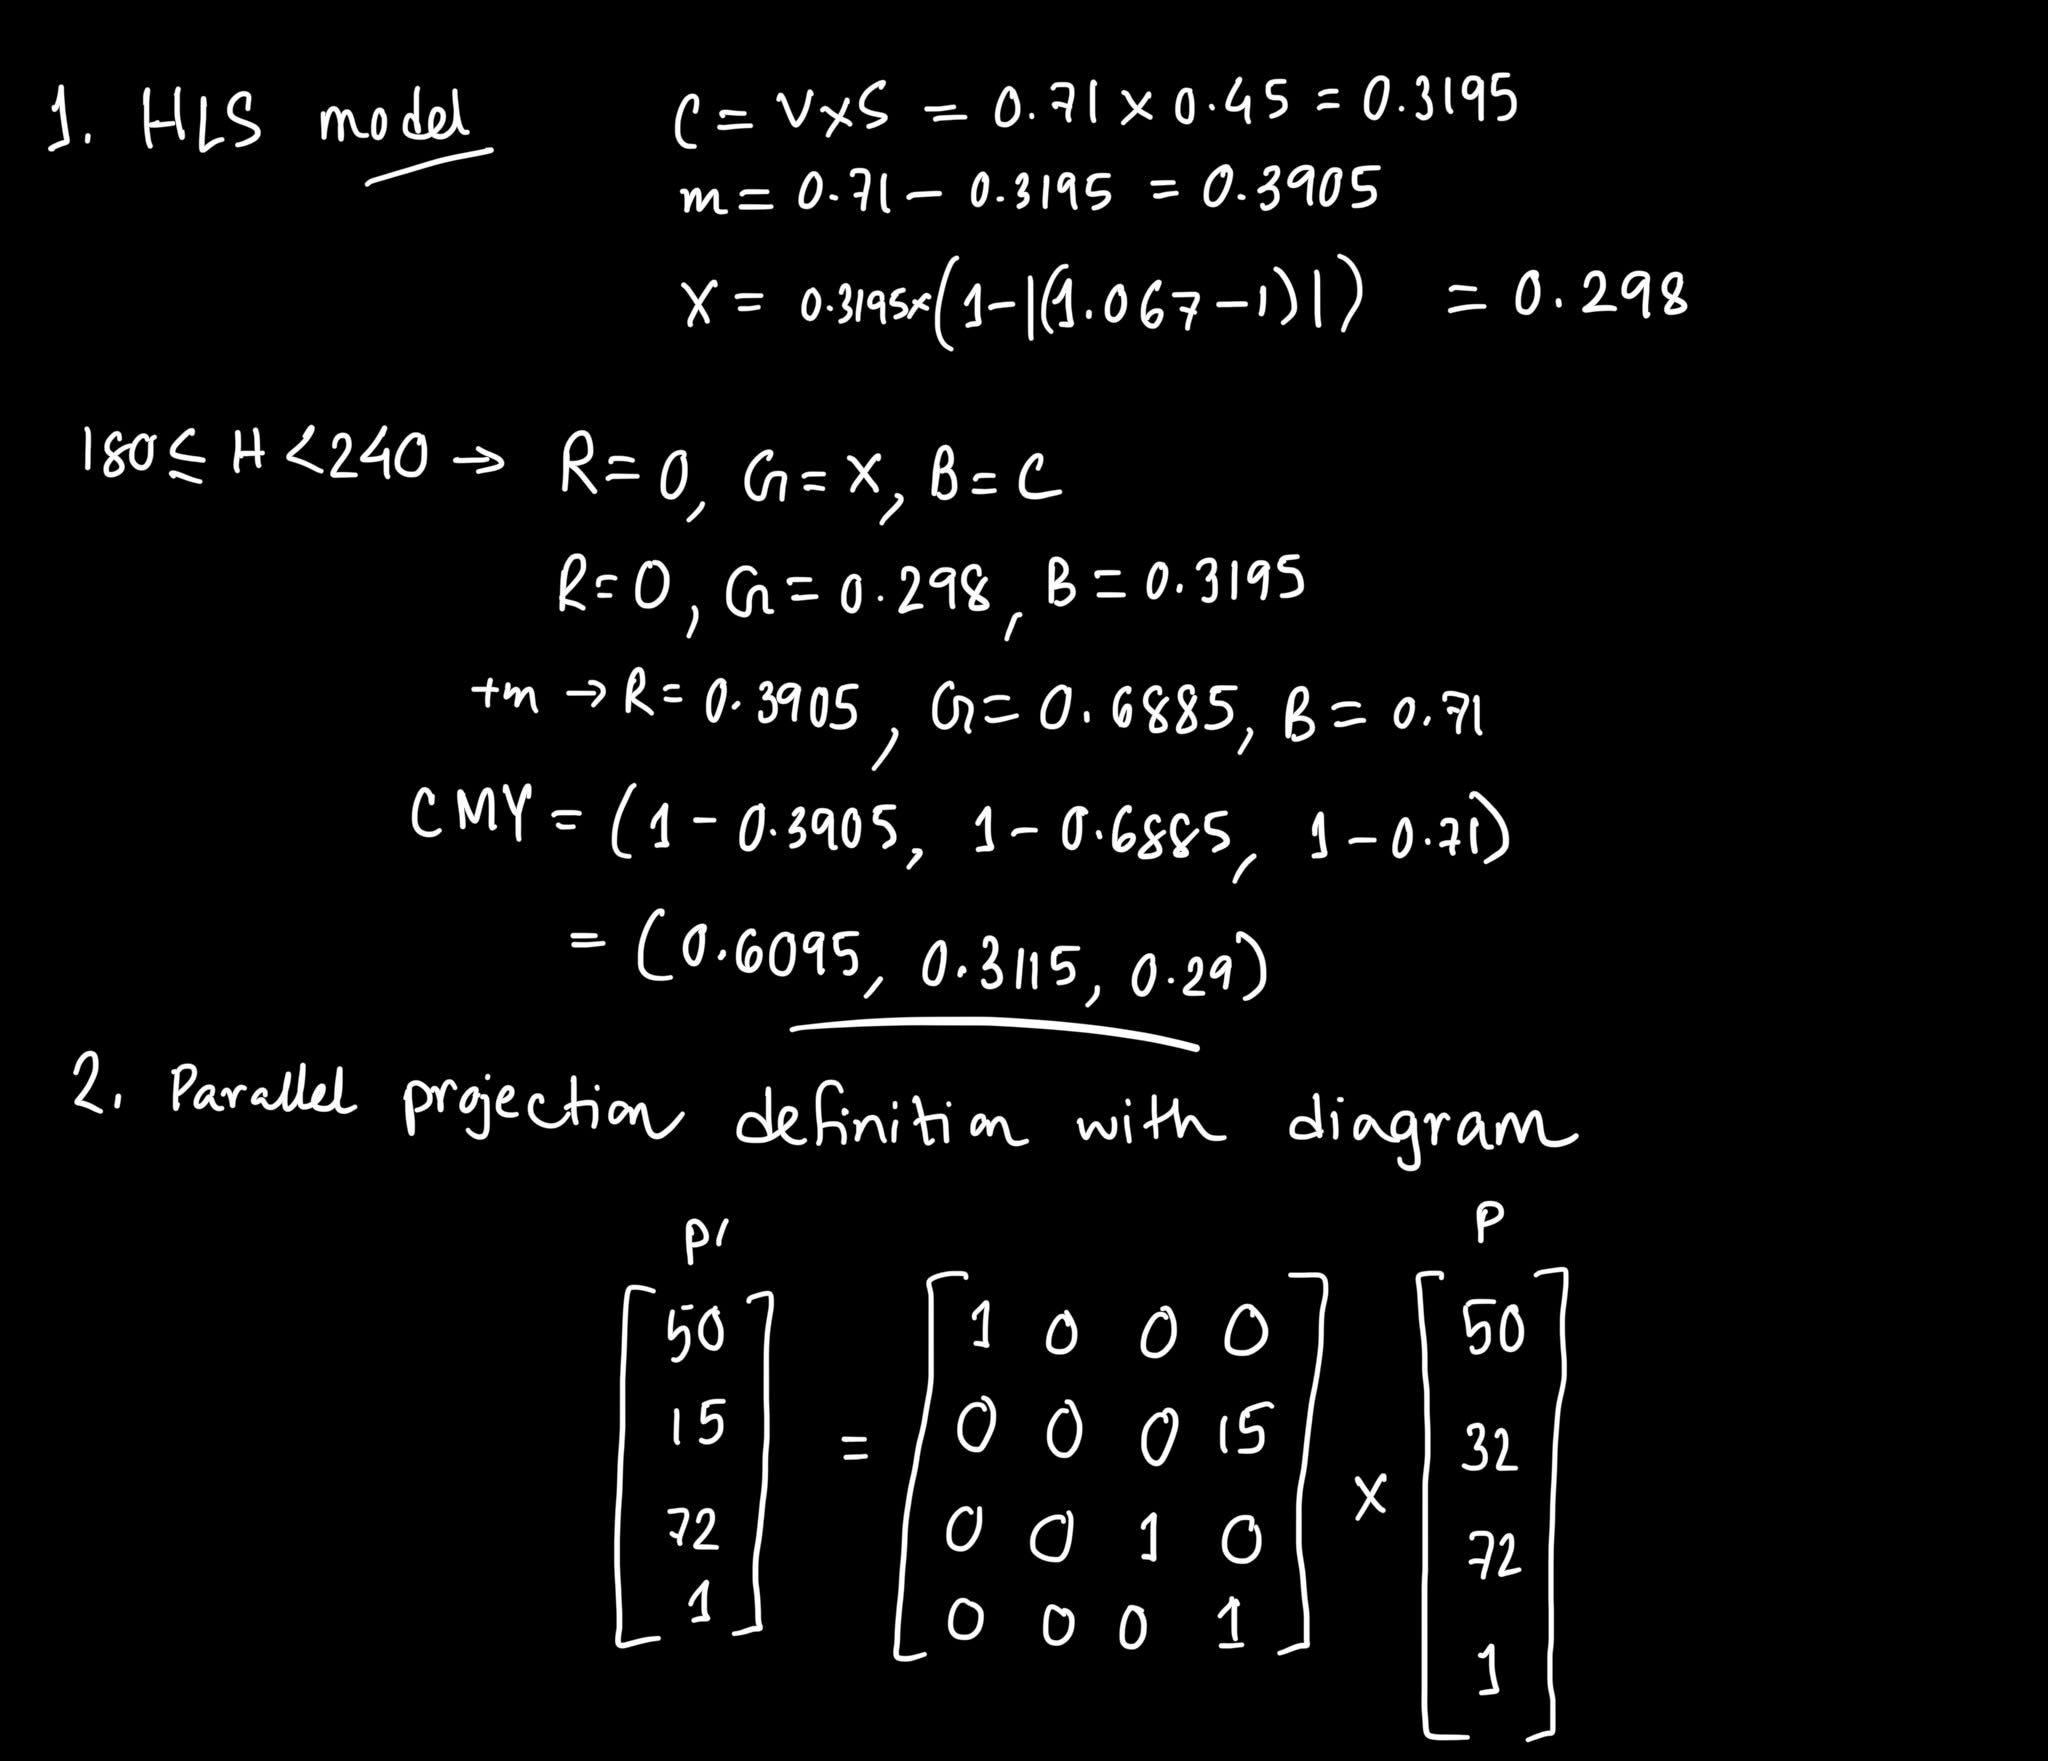 1. HLS model C = V×S = 0.71 × 0.45 = 0.3195
m = 0.71 - 0.3195 = 0.3905
X = 0.3195×(1-|(1.067-1)|) = 0.298
180 ≤ H < 240 → R=0, G=X, B=C
R=0, G=0.298, B=0.3195
+m → R=0.3905, G=0.6885, B=0.71
CMY = (1-0.3905, 1-0.6885, 1-0.71)
= (0.6095, 0.3115, 0.29)
2. Parallel projection definition with diagram
P' P
[50 15 72 1] = [1 0 0 0
0 0 0 15
0 0 1 0
0 0 0 1] × [50 32 72 1]